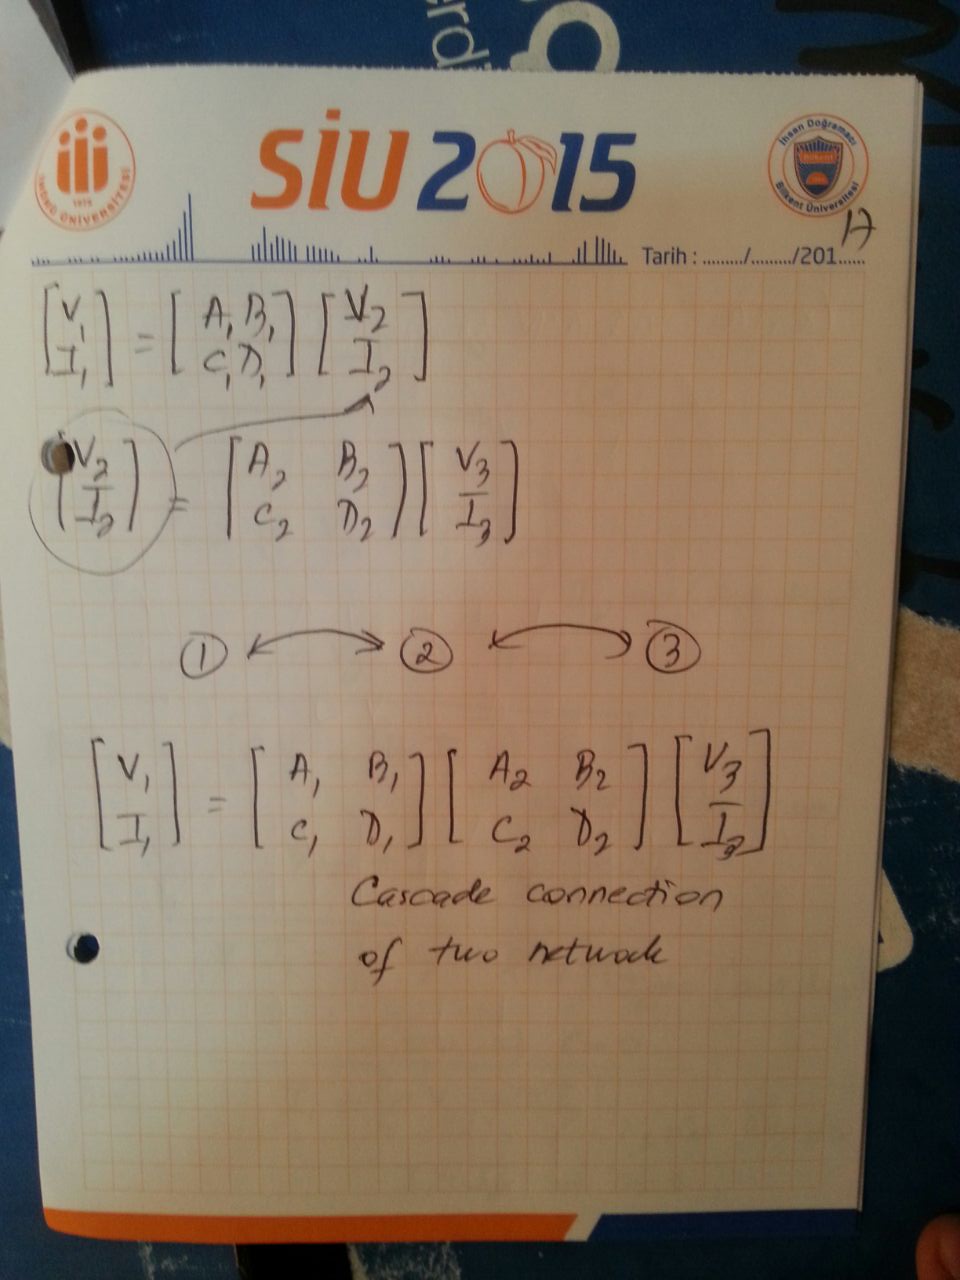 erdi
SİU 2015
İNÖNÜ ÜNİVERSİTESİ
1975
İhsan Doğramacı
Bilkent
Bilkent Üniversitesi
17
Tarih : ......../......../201......
[V₁ / I₁] = [A₁ B₁ / C₁ D₁] [V₂ / I₂]
[V₂ / I₂] = [A₂ B₂ / C₂ D₂] [V₃ / I₃]
① ↔ ② ↔ ③
[V₁ / I₁] = [A₁ B₁ / C₁ D₁] [A₂ B₂ / C₂ D₂] [V₃ / I₃]
Cascade connection
of two network